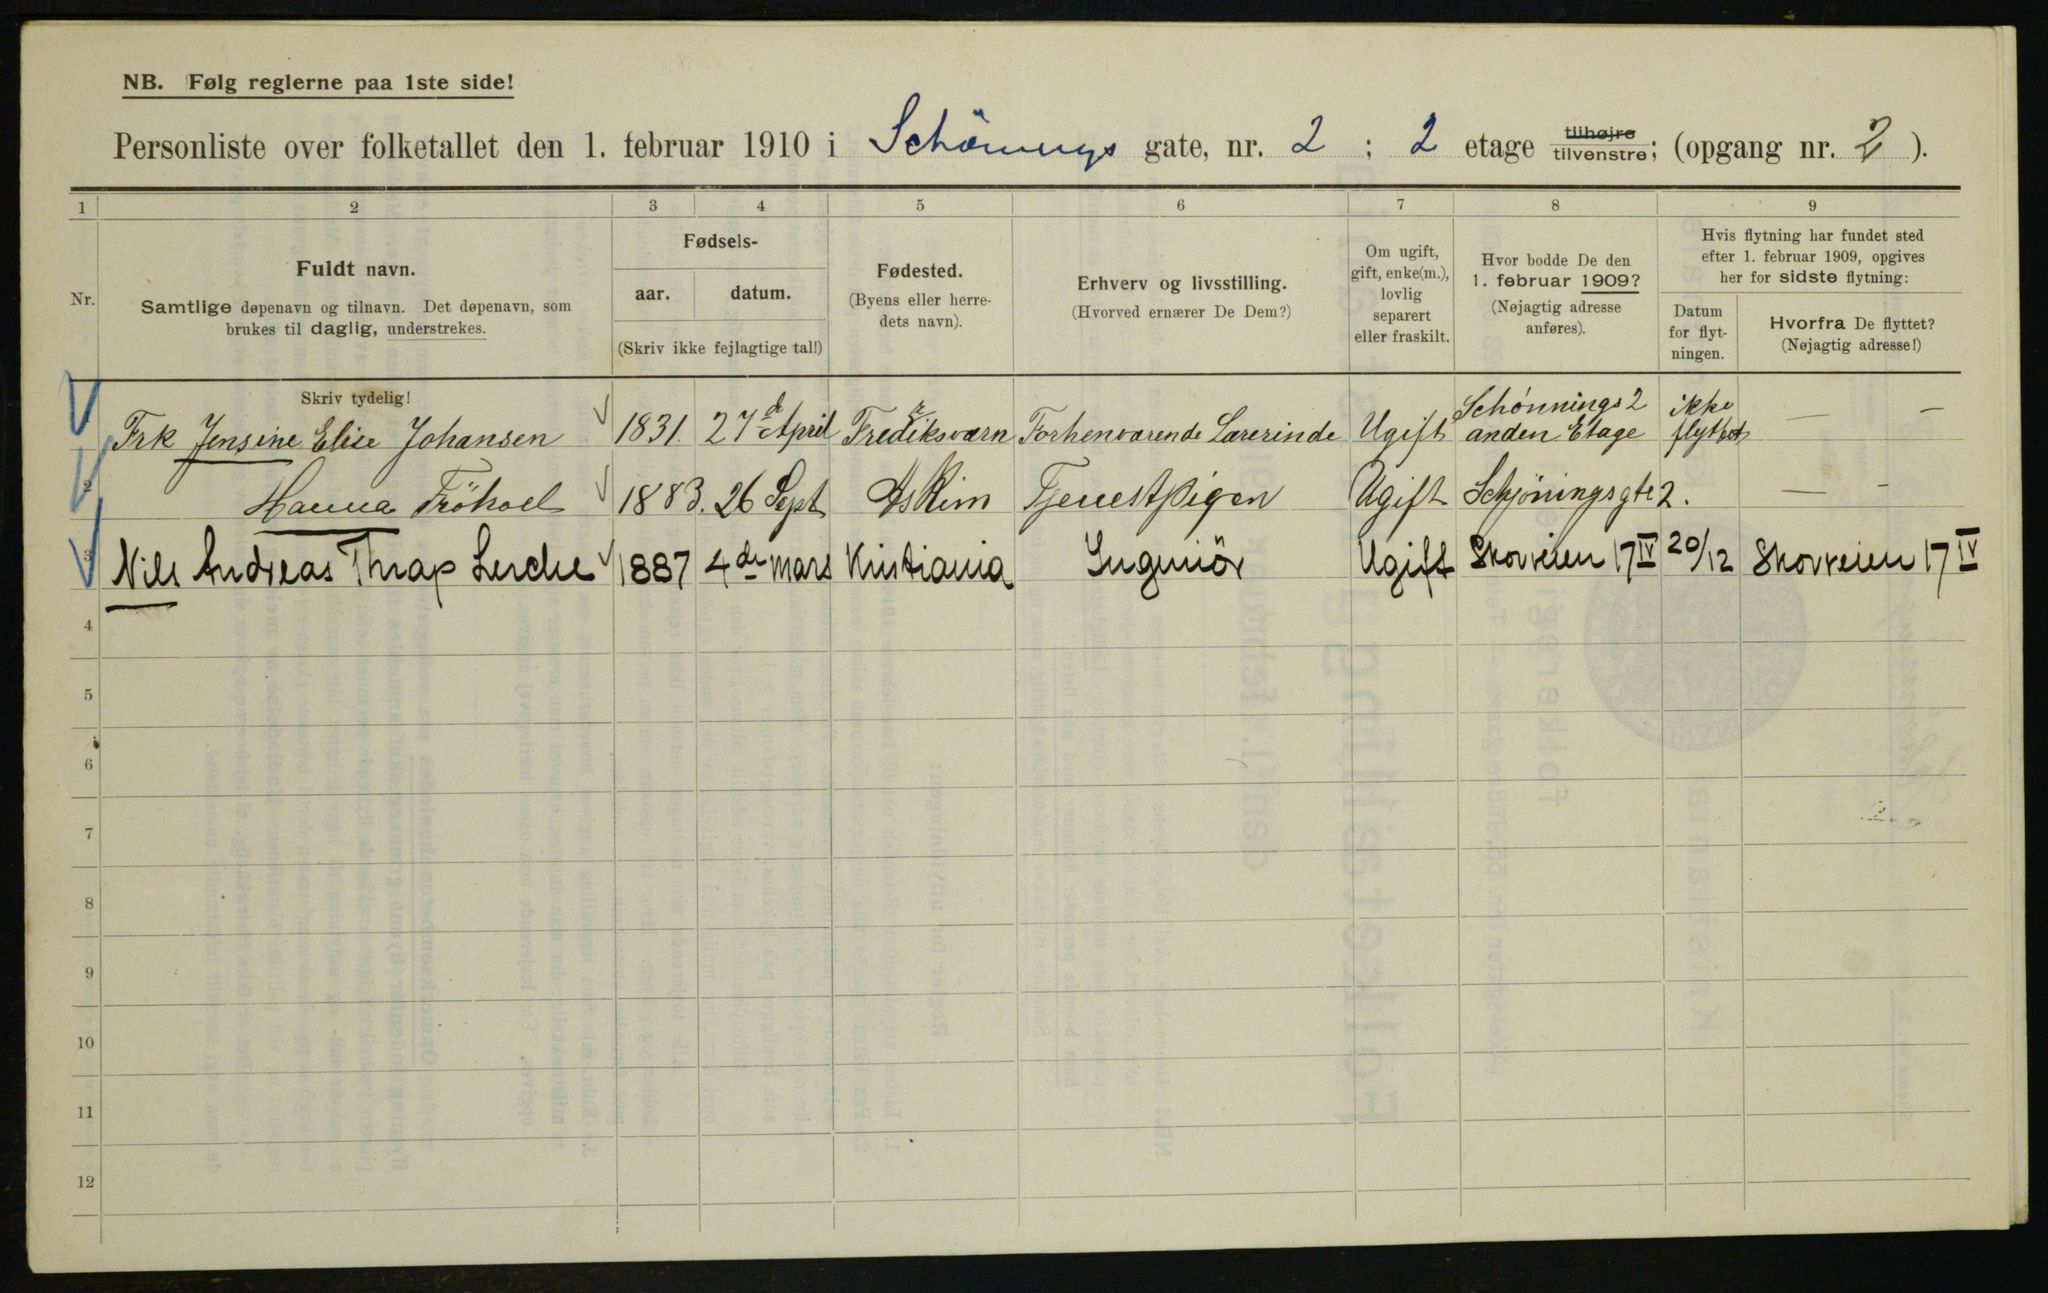 NB. Følg reglerne paa 1ste side!
Personliste over folketallet den 1. februar 1910 i Schönings gate, nr. 2 ; 2 etage tilhøjre tilvenstre; (opgang nr. 2 ).
1 2 3 4 5 6 7 8 9
Nr.
Fuldt navn.
Samtlige døpenavn og tilnavn. Det døpenavn, som
brukes til daglig, understrekes.
Fødsels-
aar. datum.
(Skriv ikke fejlagtige tal!)
Fødested.
(Byens eller herre-
dets navn).
Erhverv og livsstilling.
(Hvorved ernærer De Dem?)
Om ugift,
gift, enke(m.),
lovlig
separert
eller fraskilt.
Hvor bodde De den
1. februar 1909?
(Nøjagtig adresse
anføres).
Hvis flytning har fundet sted
efter 1. februar 1909, opgives
her for sidste flytning:
Datum
for flyt-
ningen.
Hvorfra De flyttet?
(Nøjagtig adresse!)
Skriv tydelig!
Frk Jensine Elise Johansen 1831. 27d April Fredriksværn Forhenværende Lærerinde Ugift Schønnings 2 anden Etage ikke flyttet — —
2 Hanna Fröhoel 1883. 26 Sept Askim Tjenestpigen Ugift Schjöningsgte 2. — -
3 Nils Andreas Thrap Lerche 1887 4de mars Kristiania Ingeniör Ugift Skovveien 17 IV 20/12 Skovveien 17 IV
4
5
6
7
8
9
10
11
12